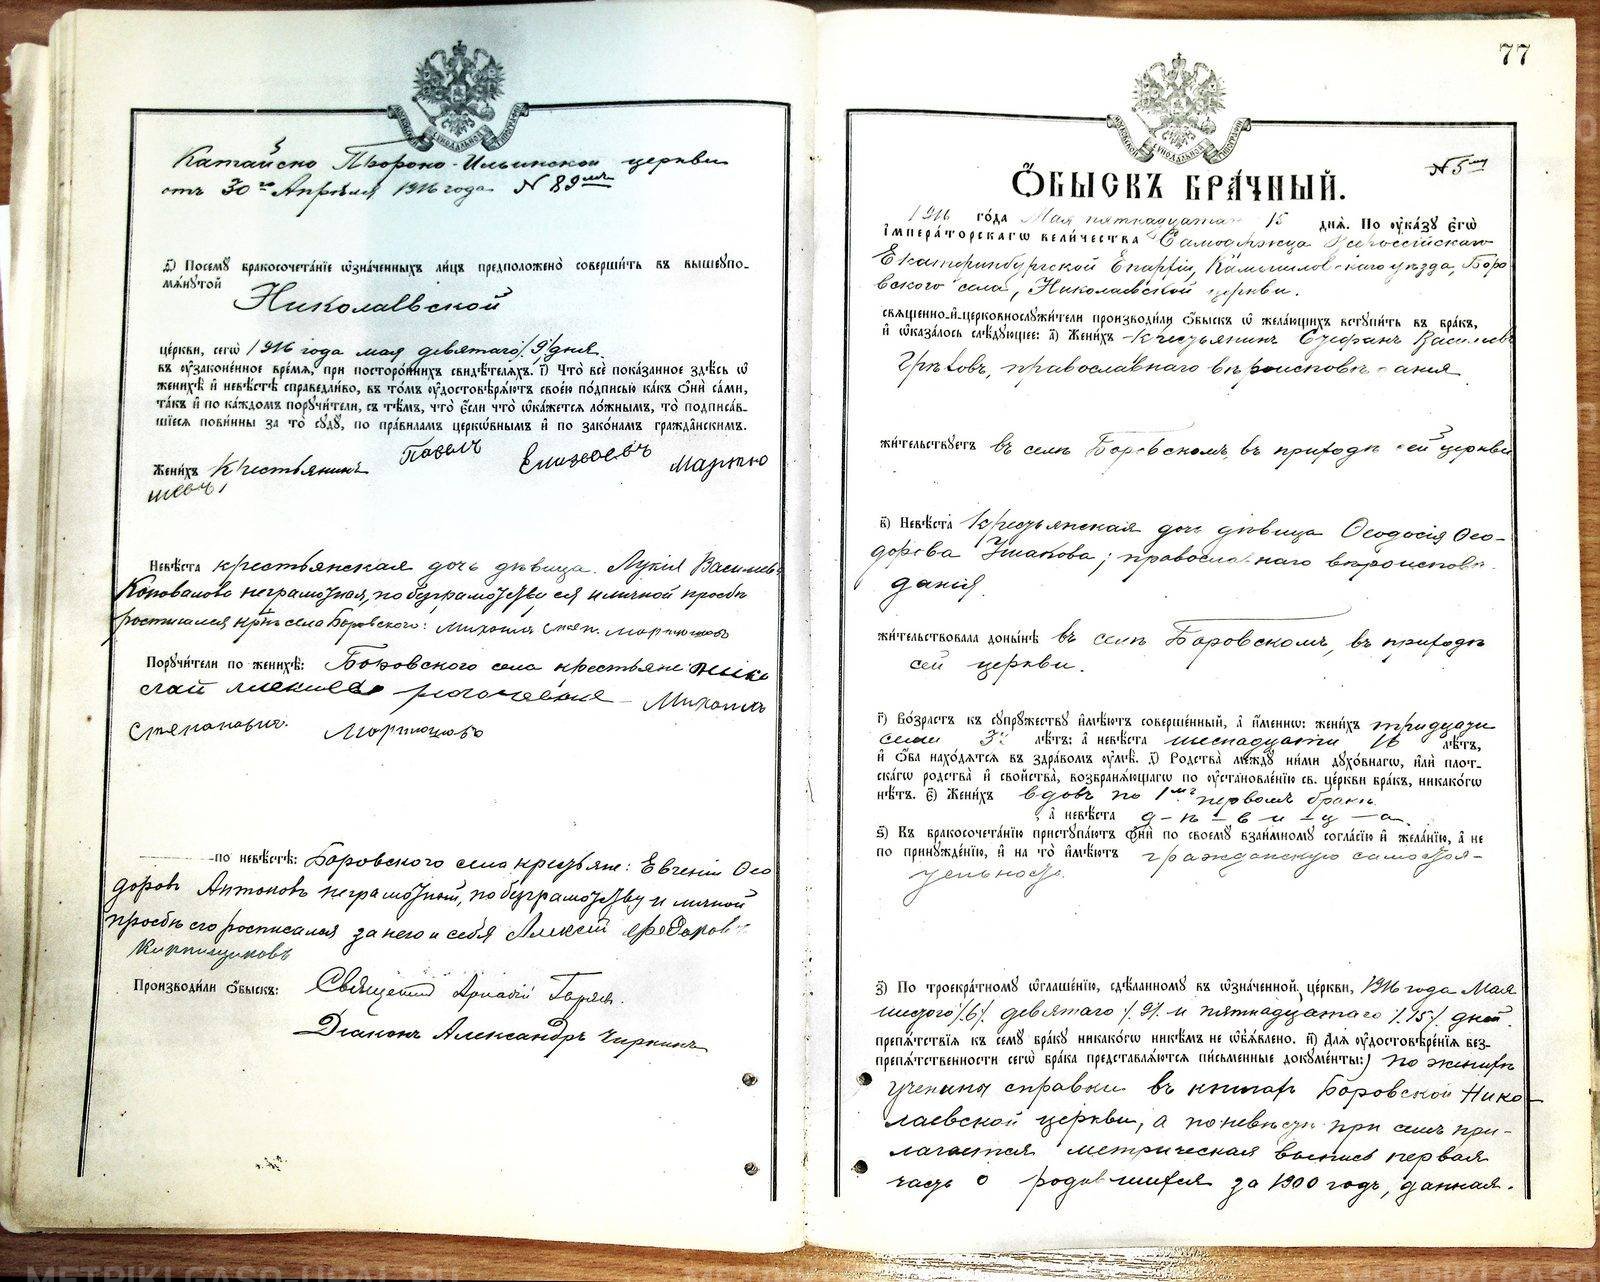 Катайско Пророко-Ильинской церкви
отъ 30го Апрѣля 1916 года № 89
ѳ҃) Посемꙋ бракосочетанїе ѡзначенныхъ лицъ предположено совершить въ вышеупо-
мянутой
Николаевской
церкви, сегѡ 1916 года мая девятаго /9/ дня
въ ᲂузаконенное время, при постороннихъ свидѣтеляхъ. і҃) Что всё показанное здѣсь ѡ
женихѣ и невѣстѣ справедливо, въ томъ ᲂудостовѣряютъ своею подписью какъ ѻни сами,
такъ и по каждомъ поручители, съ тѣмъ, что если что ѡкажется ложнымъ, то подписав-
шїеся повинны за то суду, по правиламъ церковнымъ и по законамъ гражданскимъ.
Женихъ Крестьянинъ Павелъ Елисеевъ Мартю
шевъ
Невѣста крестьянская дочь дѣвица Лукия Василье
Коновалова неграмотная, по безграмотству ея и личной просьбѣ
росписался кр-нъ села Боровского: Михаилъ Степ. Мартюшовъ
Поручители по женихѣ: Боровского села крестьяне: Нико
лай Михаилъ
Степановичъ Мартюшовъ
по невѣстѣ: Боровского села крестьяне: Евгений Ѳео
доровъ Антоновъ неграмотный, по безграмотству и личной
просьбѣ его росписался за него и себя Алексѣй Федоровъ
Кирпищиковъ
Производили ѻбыскъ: Священникъ Аркадій
Діаконъ Александръ Чиркинъ
77
№ 5
ѺБЫСКЪ БРАЧНЫЙ.
1916 года Мая пятнадцатаго 15 дня. По ᲂуказу Егѡ
Императорскагѡ величества Самодержца Всероссійскаго
Екатеринбургской Епархіи, Камышловскаго уѣзда, Боро-
вского села, Николаевской церкви.
священно-и-церковнослужители производили ѻбыскъ ѡ желающихъ вступить въ бракъ,
и ѡказалось слѣдующее: а҃) Женихъ Крестьянинъ Стефанъ Василіевъ
Грѣховъ, православнаго вѣроисповѣданія
жительствуетъ въ селѣ Боровскомъ, въ приходѣ сей церкви
в҃) Невѣста Крестьянская дочь дѣвица Ѳеодосія Ѳео-
дорова Ушакова; православнаго вѣроисповѣ-
данія.
жительствовала донынѣ въ селѣ Боровскомъ, въ приходѣ
сей церкви.
г҃) Возрастъ къ супружеству имѣютъ совершенный, а именно: женихъ тридцати
семи 37 лѣтъ: а невѣста шеснадцати 16 лѣтъ,
и ѻба находятся въ здравомъ ᲂумѣ. д҃) Родства между ними духовнагѡ, или плот-
скагѡ родства и свойства, возбраняющагѡ по ᲂустановленїю св. церкви бракъ, никакогѡ
нѣтъ. є҃) Женихъ вдовъ по 1мъ первомъ бракѣ
, а невѣста д-ѣ-в-и-ц-а.
ѕ҃) Къ бракосочетанїю приступаютъ ѻни по своему взаимному согласїю и желанїю, а не
по принужденїю, и на то имѣютъ гражданскую самостоя-
тельность.
з҃) По троекратному ѡглашенїю, сдѣланному въ ѡзначенной церкви, 1916 года Мая
шестого /6/, девятаго /9/ и пятнадцатаго /15/ дней.
препятствїя къ сему браку никакогѡ никѣмъ не ѡбъявлено. и҃) Для ᲂудостовѣренїя без-
препятственности сегѡ брака представляются письменные документы: по женихѣ
учинены справки въ книгахъ Боровской Нико-
лаевской церкви, а по невѣстѣ при семъ при-
лагается метрическая выпись первая
часть о родившихся за 1900 годъ, данная.